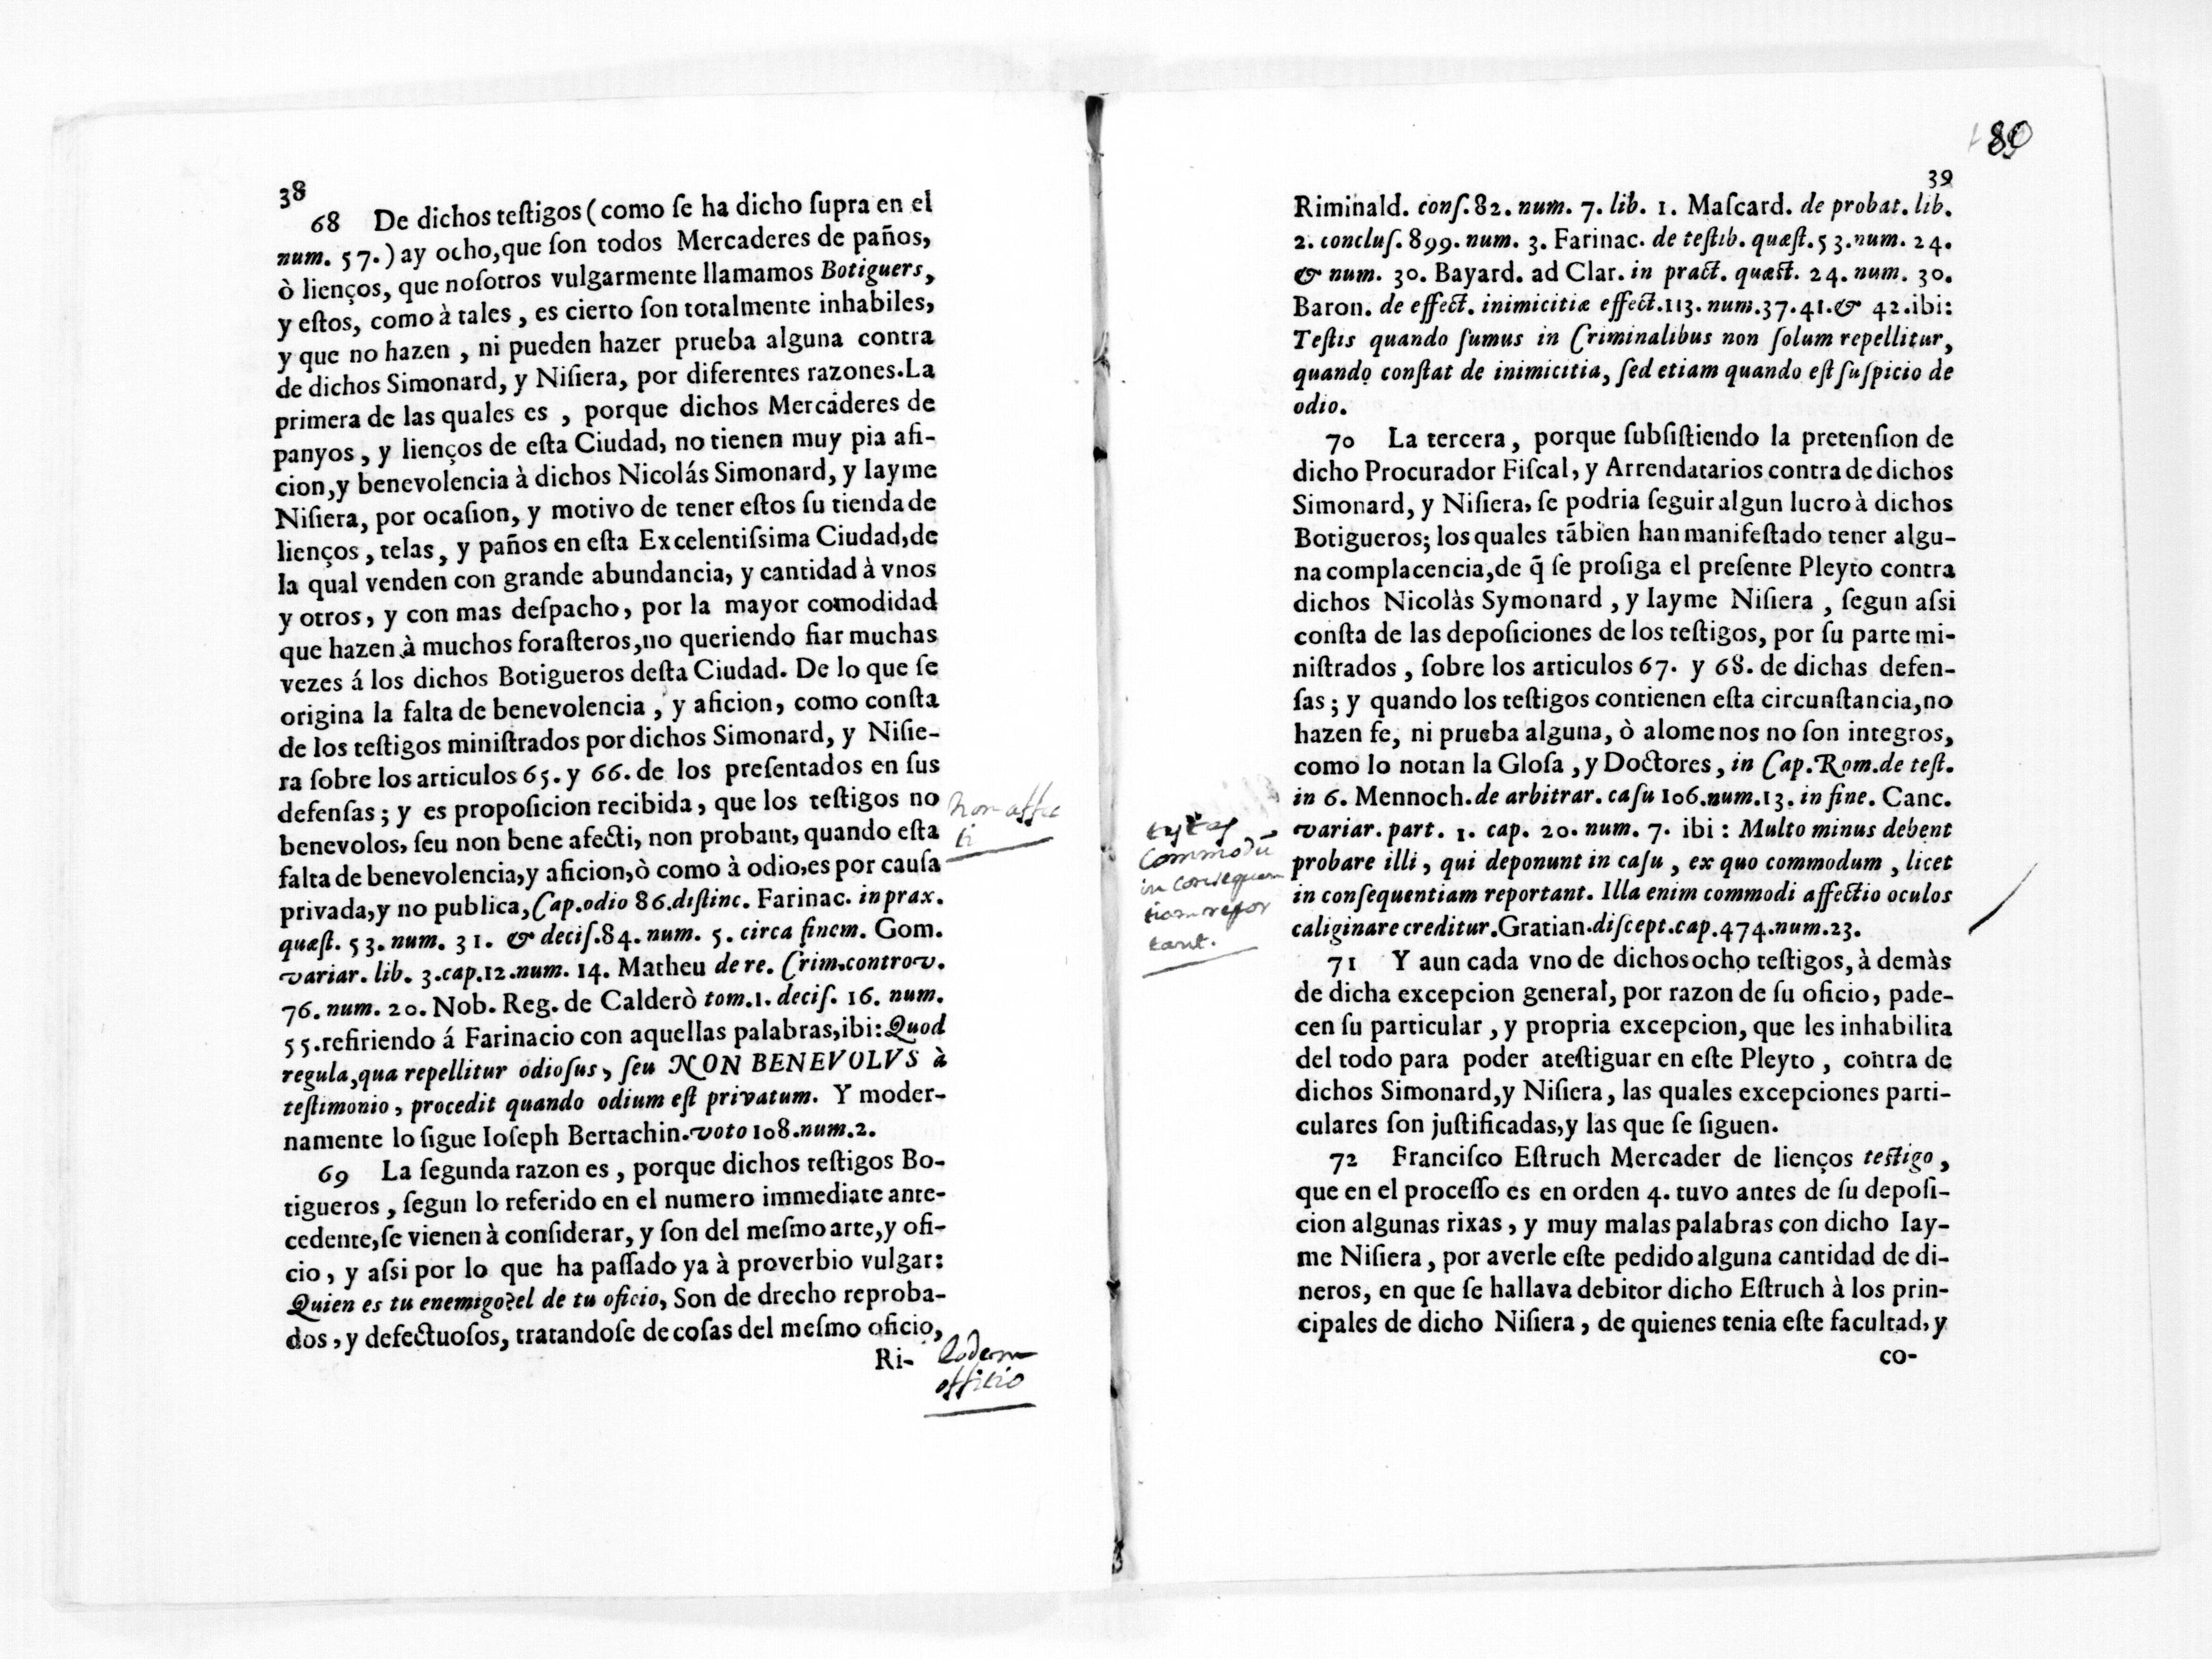 38
68 De dichos teſtigos (como ſe ha dicho ſupra en el
num. 57.) ay ocho, que ſon todos Mercaderes de paños,
ò lienços, que noſotros vulgarmente llamamos Botiguers,
y eſtos, como à tales, es cierto ſon totalmente inhabiles,
y que no hazen, ni pueden hazer prueba alguna contra
de dichos Simonard, y Niſiera, por diferentes razones. La
primera de las quales es, porque dichos Mercaderes de
panyos, y lienços de eſta Ciudad, no tienen muy pia afi-
cion, y benevolencia à dichos Nicolás Simonard, y Iayme
Niſiera, por ocaſion, y motivo de tener eſtos ſu tienda de
lienços, telas, y paños en eſta Excelentiſsima Ciudad, de
la qual venden con grande abundancia, y cantidad à vnos
y otros, y con mas deſpacho, por la mayor comodidad
que hazen à muchos foraſteros, no queriendo fiar muchas
vezes á los dichos Botigueros deſta Ciudad. De lo que ſe
origina la falta de benevolencia, y aficion, como conſta
de los teſtigos miniſtrados por dichos Simonard, y Niſie-
ra ſobre los articulos 65. y 66. de los preſentados en ſus
defenſas; y es propoſicion recibida, que los teſtigos no
benevolos, ſeu non bene afecti, non probant, quando eſta
falta de benevolencia, y aficion, ò como à odio, es por cauſa
privada, y no publica, Cap. odio 86. diſtinc. Farinac. in prax.
quæſt. 53. num. 31. & deciſ. 84. num. 5. circa finem. Gom.
variar. lib. 3. cap. 12. num. 14. Matheu de re. Crim. controv.
76. num. 20. Nob. Reg. de Calderò tom. 1. deciſ. 16. num.
55. refiriendo á Farinacio con aquellas palabras, ibi: Quod
regula, qua repellitur odioſus, ſeu NON BENEVOLVS à
teſtimonio, procedit quando odium eſt privatum. Y moder-
namente lo ſigue Ioſeph Bertachin. voto 108. num. 2.
69 La ſegunda razon es, porque dichos teſtigos Bo-
tigueros, ſegun lo referido en el numero immediate ante-
cedente, ſe vienen à conſiderar, y ſon del meſmo arte, y ofi-
cio, y aſsi por lo que ha paſſado ya à proverbio vulgar:
Quien es tu enemigo? el de tu oficio, Son de drecho reproba-
dos, y defectuoſos, tratandoſe de coſas del meſmo oficio,
Ri-
non affec
ti
Eodem
offitio
89
39
Riminald. conſ. 82. num. 7. lib. 1. Maſcard. de probat. lib.
2. concluſ. 899. num. 3. Farinac. de teſtib. quæſt. 53. num. 24.
& num. 30. Bayard. ad Clar. in pract. quæſt. 24. num. 30.
Baron. de effect. inimicitiæ effect. 113. num. 37. 41. & 42. ibi:
Teſtis quando ſumus in Criminalibus non ſolum repellitur,
quando conſtat de inimicitia, ſed etiam quando eſt ſuſpicio de
odio.
70 La tercera, porque ſubſiſtiendo la pretenſion de
dicho Procurador Fiſcal, y Arrendatarios contra de dichos
Simonard, y Niſiera, ſe podria ſeguir algun lucro à dichos
Botigueros; los quales tãbien han manifeſtado tener algu-
na complacencia, de q̃ ſe proſiga el preſente Pleyto contra
dichos Nicolàs Symonard, y Iayme Niſiera, ſegun aſsi
conſta de las depoſiciones de los teſtigos, por ſu parte mi-
niſtrados, ſobre los articulos 67. y 68. de dichas defen-
ſas; y quando los teſtigos contienen eſta circunſtancia, no
hazen fe, ni prueba alguna, ò alomenos no ſon integros,
como lo notan la Gloſa, y Doctores, in Cap. Rom. de teſt.
in 6. Mennoch. de arbitrar. caſu 106. num. 13. in fine. Canc.
variar. part. 1. cap. 20. num. 7. ibi: Multo minus debent
probare illi, qui deponunt in caſu, ex quo commodum, licet
in conſequentiam reportant. Illa enim commodi affectio oculos
caliginare creditur. Gratian. diſcept. cap. 474. num. 23.
71 Y aun cada vno de dichos ocho teſtigos, à demàs
de dicha excepcion general, por razon de ſu oficio, pade-
cen ſu particular, y propria excepcion, que les inhabilita
del todo para poder ateſtiguar en eſte Pleyto, contra de
dichos Simonard, y Niſiera, las quales excepciones parti-
culares ſon juſtificadas, y las que ſe ſiguen.
72 Franciſco Eſtruch Mercader de lienços teſtigo,
que en el proceſſo es en orden 4. tuvo antes de ſu depoſi-
cion algunas rixas, y muy malas palabras con dicho Iay-
me Niſiera, por averle eſte pedido alguna cantidad de di-
neros, en que ſe hallava debitor dicho Eſtruch à los prin-
cipales de dicho Niſiera, de quienes tenia eſte facultad, y
co-
Commodũ
in consequen
tiam repor
tant.